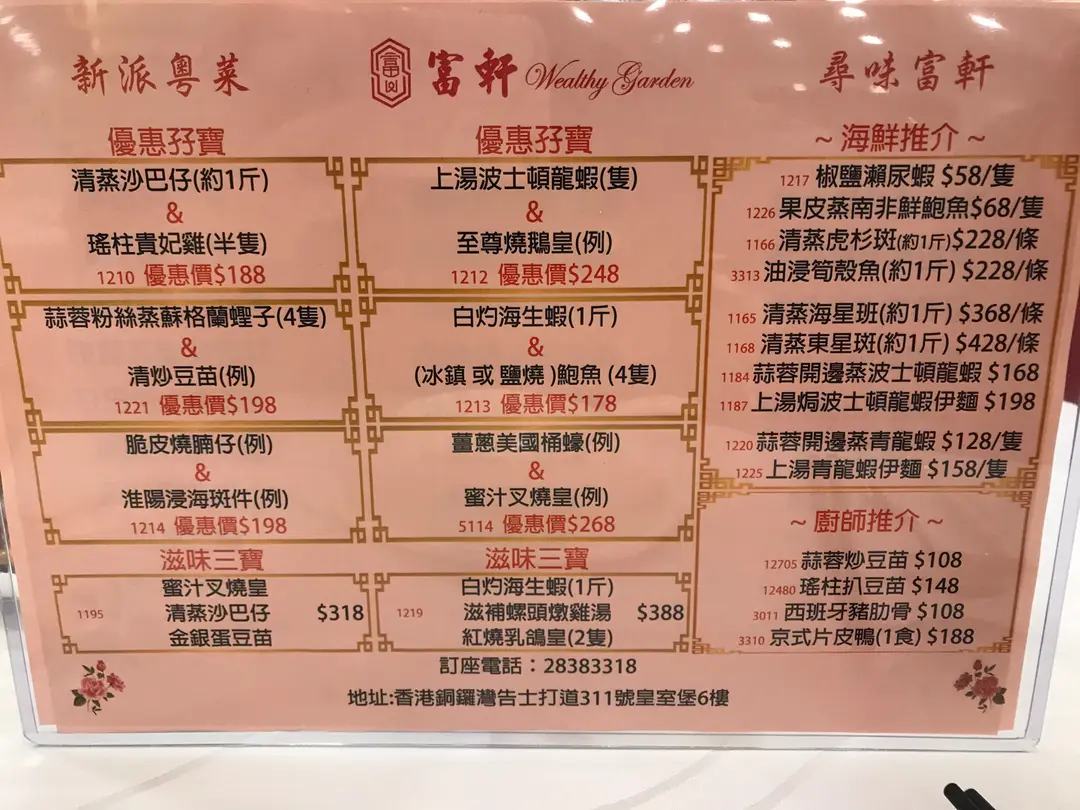 新派粵菜
富軒 Wealthy Garden
尋味富軒
優惠孖寶
清蒸沙巴仔(約1斤)
&
瑤柱貴妃雞(半隻)
1210 優惠價$188
蒜蓉粉絲蒸蘇格蘭蟶子(4隻)
&
清炒豆苗(例)
1221 優惠價$198
脆皮燒腩仔(例)
&
淮陽浸海斑件(例)
1214 優惠價$198
滋味三寶
蜜汁叉燒皇
1195 清蒸沙巴仔 $318
金銀蛋豆苗
優惠孖寶
上湯波士頓龍蝦(隻)
&
至尊燒鵝皇(例)
1212 優惠價$248
白灼海生蝦(1斤)
&
(冰鎮 或 鹽燒 )鮑魚 (4隻)
1213 優惠價$178
薑蔥美國桶蠔(例)
&
蜜汁叉燒皇(例)
5114 優惠價$268
滋味三寶
白灼海生蝦(1斤)
1219 滋補螺頭燉雞湯 $388
紅燒乳鴿皇(2隻)
~ 海鮮推介 ~
1217 椒鹽瀨尿蝦 $58/隻
1226 果皮蒸南非鮮鮑魚$68/隻
1166 清蒸虎杉斑(約1斤)$228/條
3313 油浸筍殼魚(約1斤) $228/條
1165 清蒸海星班(約1斤) $368/條
1168 清蒸東星斑(約1斤) $428/條
1184 蒜蓉開邊蒸波士頓龍蝦 $168
1187 上湯焗波士頓龍蝦伊麵 $198
1220 蒜蓉開邊蒸青龍蝦 $128/隻
1225 上湯青龍蝦伊麵 $158/隻
~ 廚師推介 ~
12705 蒜蓉炒豆苗 $108
12480 瑤柱扒豆苗 $148
3011 西班牙豬肋骨 $108
3310 京式片皮鴨(1食) $188
訂座電話：28383318
地址:香港銅鑼灣告士打道311號皇室堡6樓